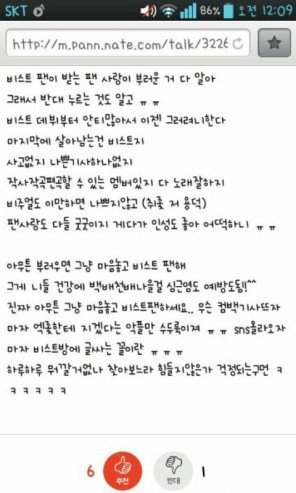 SKT 86% 오전 12:09
http://m.pann.nate.com/talk/3226
비스트 팩이 받는 팬 사랑이 부러운 거 다 알아
그래서 반대 누르는 것도 알고 ㅠㅠ
비스트 데뷔부터 안티많아서 이젠 그러려니한다
마지막에 살아남는건 비스트지
사고없지 나쁜기사하나없지
작사작곡편곡할 수 있는 멤버있지 다 노래잘하지
비쥬얼도 이만하면 나쁘지않고 (취좆 저 용덕)
팬사랑도 다들 굿굿이지 게다가 인성도 좋아 어떡하니 ㅠㅠ
아무튼 부러우면 그냥 마음놓고 비스트 팬해
그게 니들 건강에 백배천배나을걸 심근영도 예방도됨!^^
진짜 아무튼 그냥 마음놓고 비스트팬하세요.. 무슨 컴백기사뜨자
마자 엑좆한테 지겠다는 악플만 수두룩이져 ㅠㅠ sns올라오자
마자 비스트방에 글싸는 꼴이란 ㅠㅠㅠ
하루하루 뭐깔거없나 찾아보느라 힘들지않은가 걱정되는구먼 ㅋ
ㅋㅋㅋㅋㅋ
6 추천 반대 1